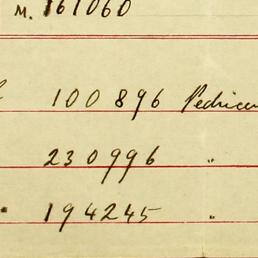 M. 161060
100896
230996 "
194245 "